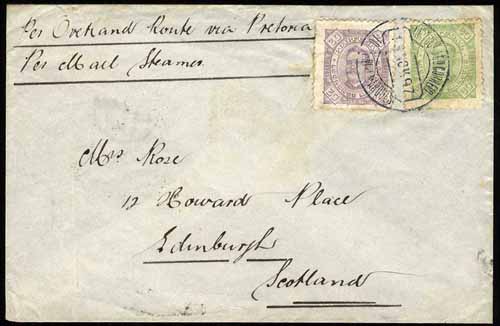 Per Overland Route via Pretoria
Per Mail Steamer
Mrs Rose
12 Howard Place
Edinburgh
Scotland